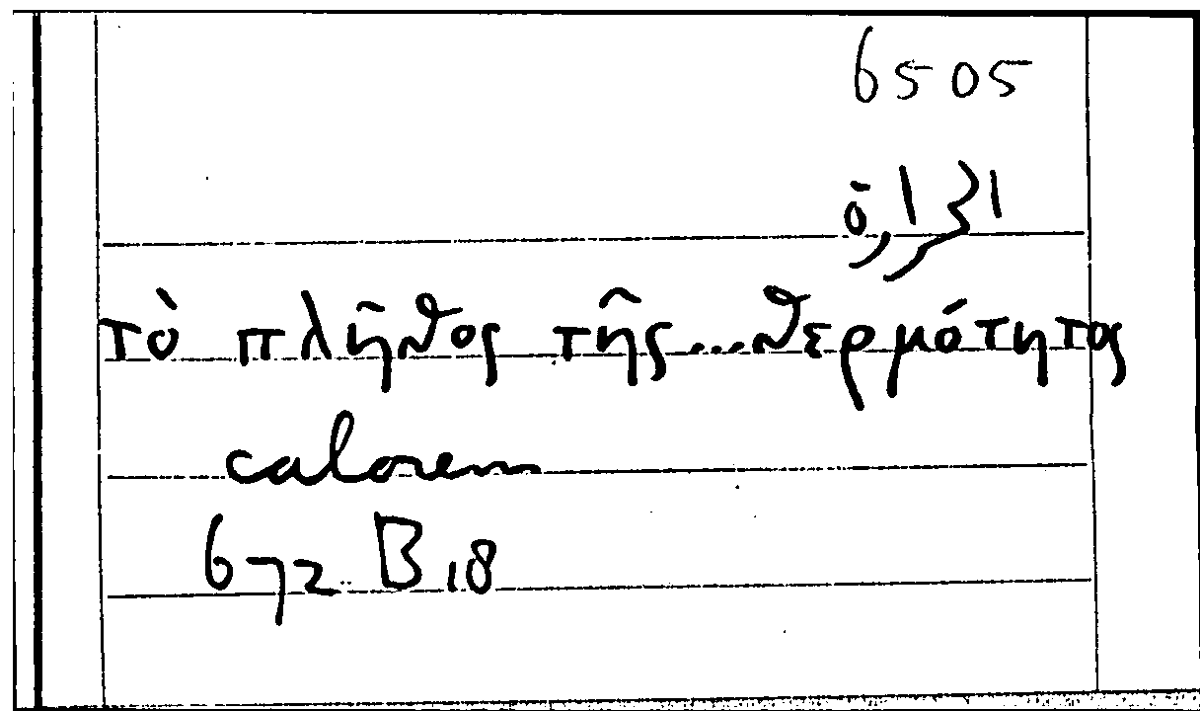 6505
τὸ πλῆθος τῆς...θερμότητος
calorem
672 B 18